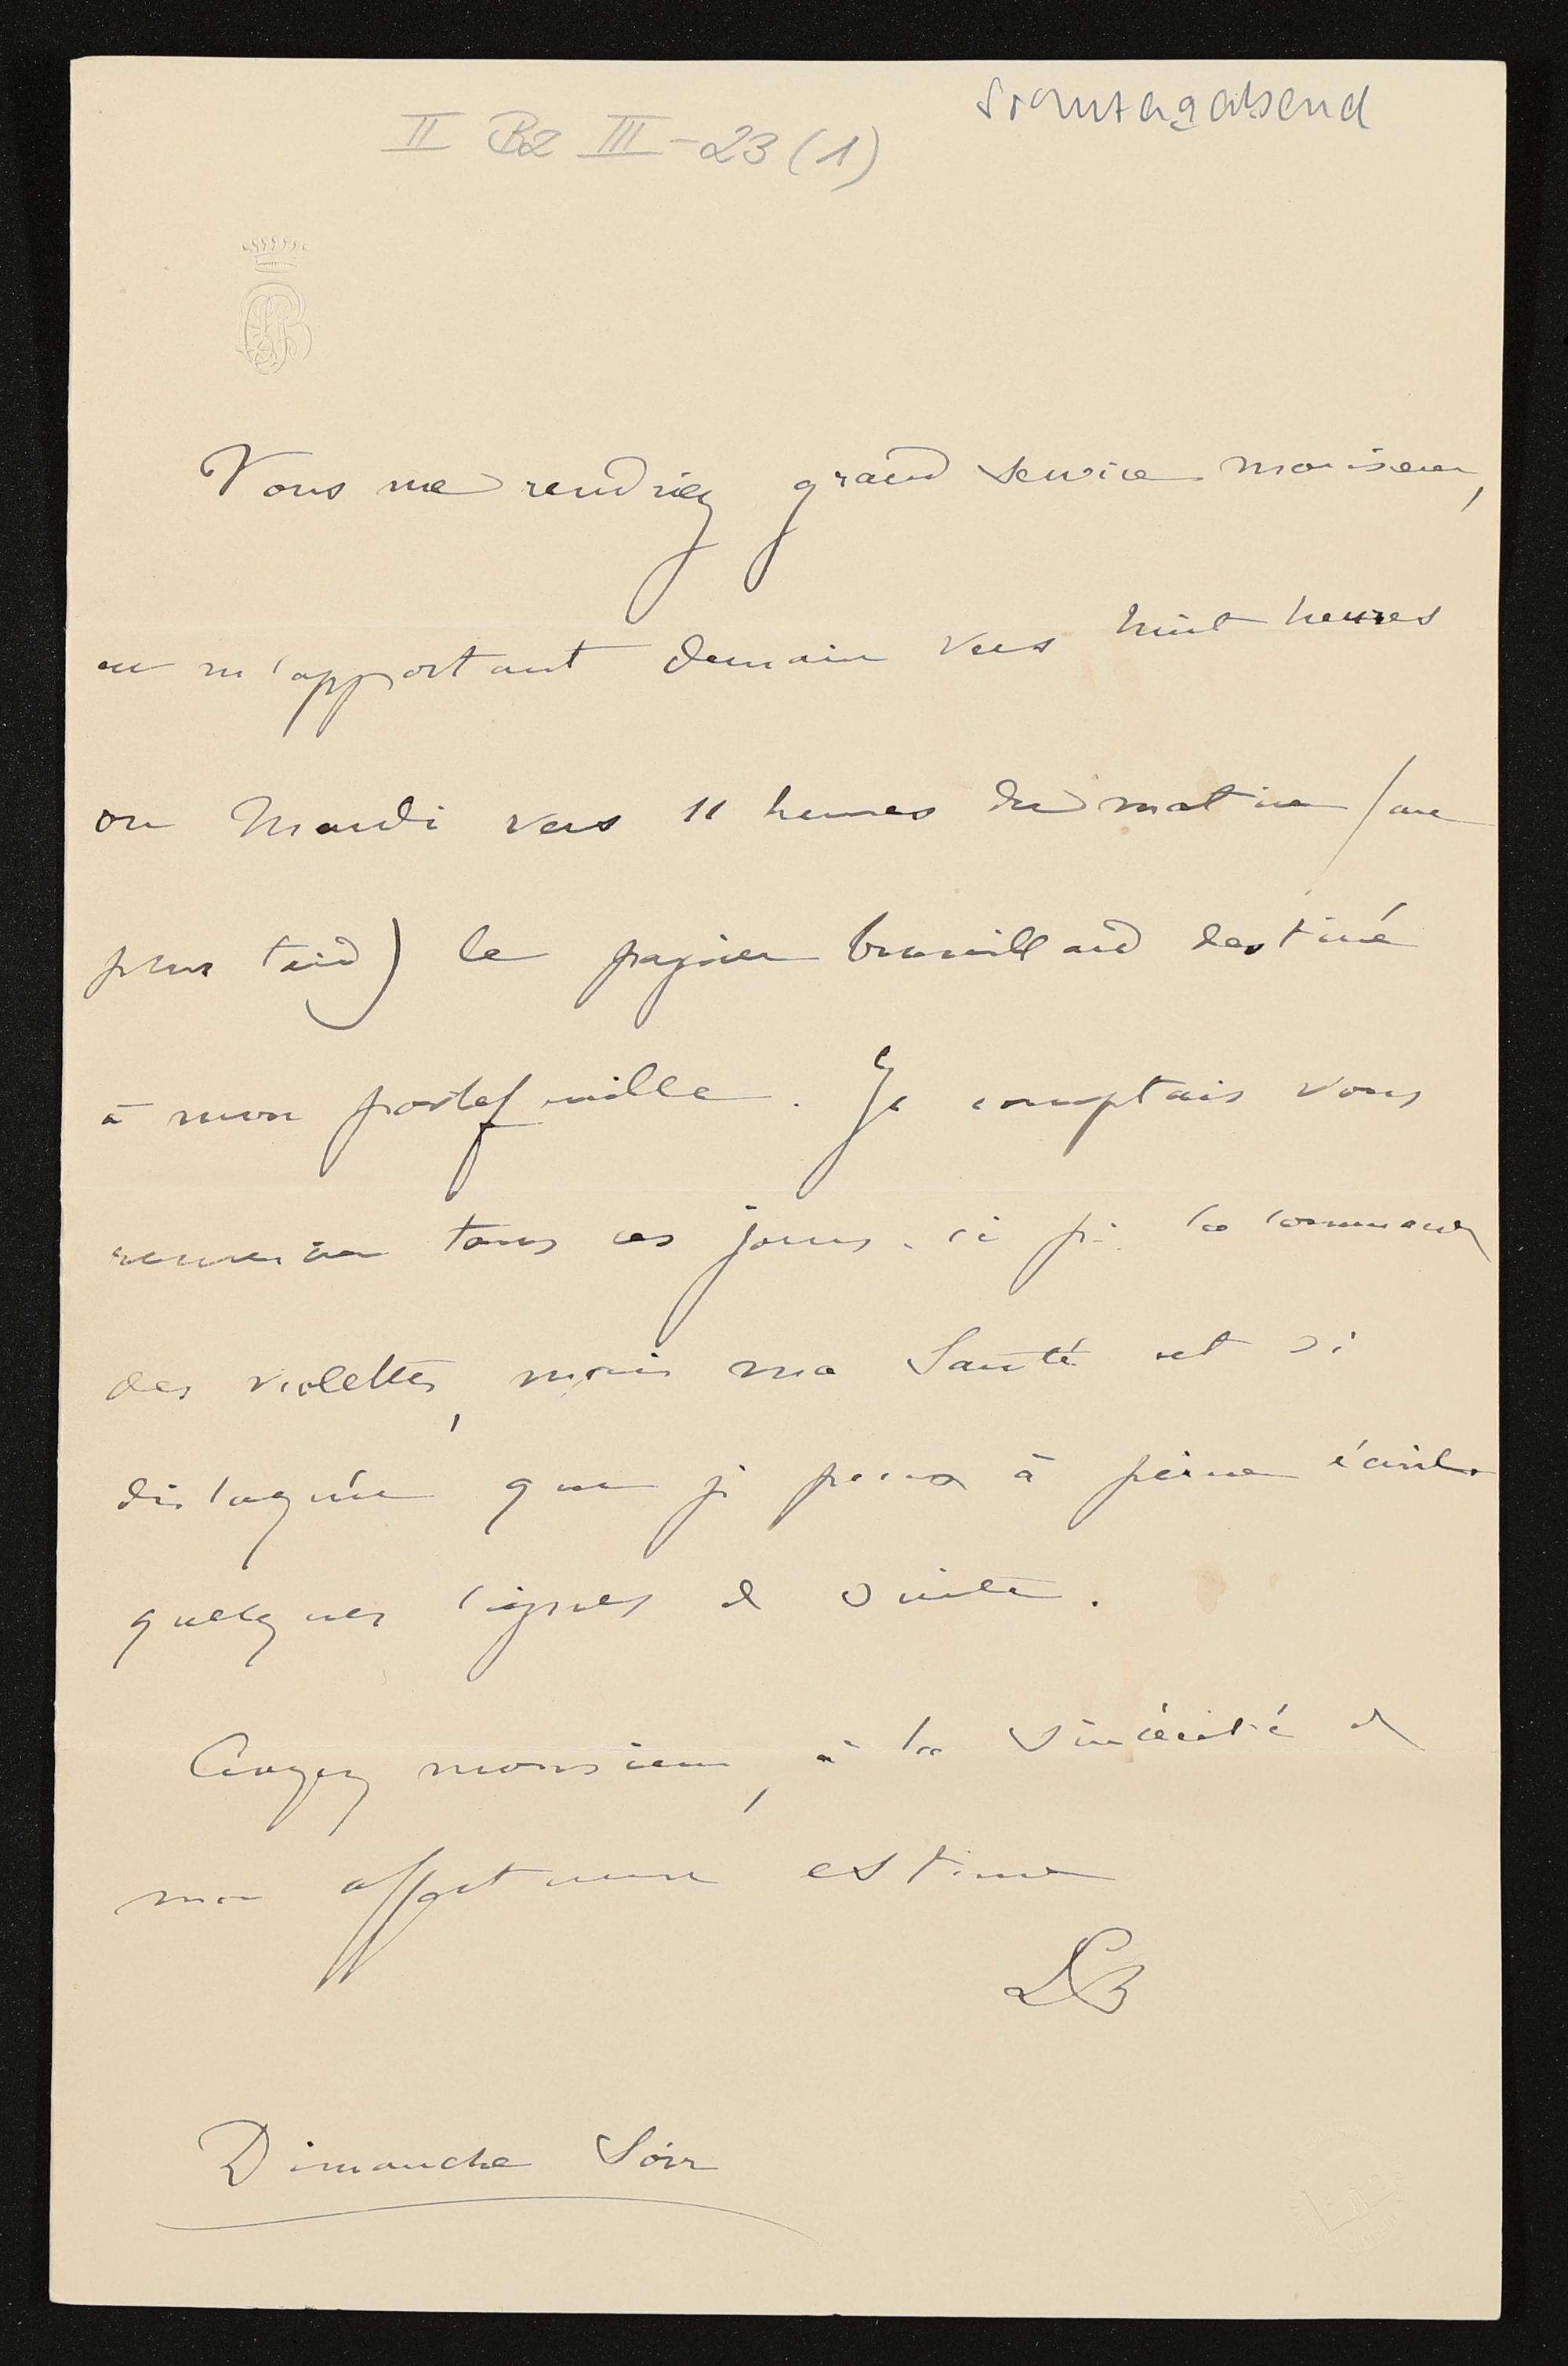 Sonntagabend
II B2 III-23 (1)
Vous me rendriez grand service monsieur,
en m'apportant demain vers huit heures
ou Mardi vers 11 heures du matin (au
plus tard) le papier brouillard destiné
à mon portefeuille. Je comptais vous
tous ces jours. ci la commande
des violettes, mais ma Santé est si
disloquée que je peux à peine écrire
quelques lignes de suite.
Croyez monsieur, à la sincérité de
mon affectueuse estime
LB
Dimanche Soir